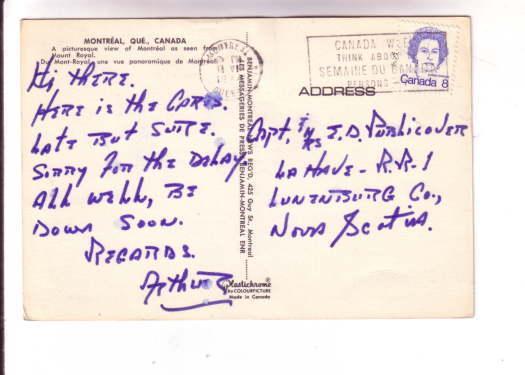 MONTRÉAL, QUÉ., CANADA
A picturesque view of Montréal as seen from
Mount Royal.
Du Mont-Royal, une vue panoramique de Montréal
Hi THERE.
HERE is the CARDS.
LATE BUT SURE.
SORRY FOR the DELAY
ALL WELL, BE
DOWN SOON.
REGARDS.
Arthur
BENJAMIN-MONTREAL NEWS REG'D, 425 Guy St., Montreal
LES MESSAGERIES DE PRESSE BENJAMIN-MONTREAL ENR.
Plastichrome
by COLOURPICTURE
Made in Canada
CANADA WEEK
THINK ABOUT
SEMAINE DU CANADA
PENSONS
Canada 8
ADDRESS
Capt. & Mrs E.D. Publicover
LAHAVE - R.R. 1
LUNENBURG Co.,
NOVA SCOTIA.